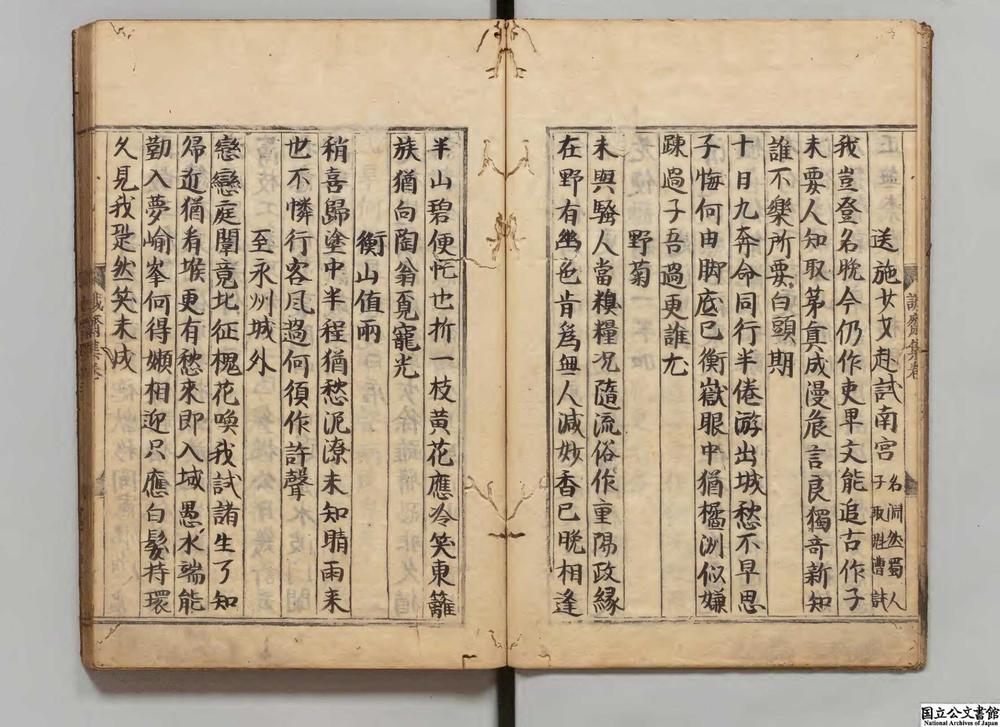 送施 赴試南宮 名淵然蜀人
子取 漕試
我豈登名晚今仍作吏卑文能追古作子
未要人知取第真成漫危言良獨奇新知
誰不樂所要白頭期
十日九奔命同行半倦游出城愁不早思
子悔何由脚底已衡嶽眼中猶橘洲似嫌
踈過子吾過更誰尤
野菊
未與騷人當糗糧况隨流俗作重陽政縁
在野有幽色肯為無人减妙香已晚相逢
誠齋集卷
半山碧便忙也折一枝黄花應冷笑東籬
族猶向陶翁覓寵光
衡山值雨
稍喜歸塗中半程猶愁泥潦未知晴雨来
也不憐行客風過何須作許聲
至永州城外
戀戀庭闈竟北征槐花喚我試諸生了知
歸近猶看堠更有愁來即入城愚水端能
勤入夢嵛峯何得嬾相迎只應白髮持環
久見我跫然笑未成
誠齋集卷
国立公文書館
National Archives of Japan